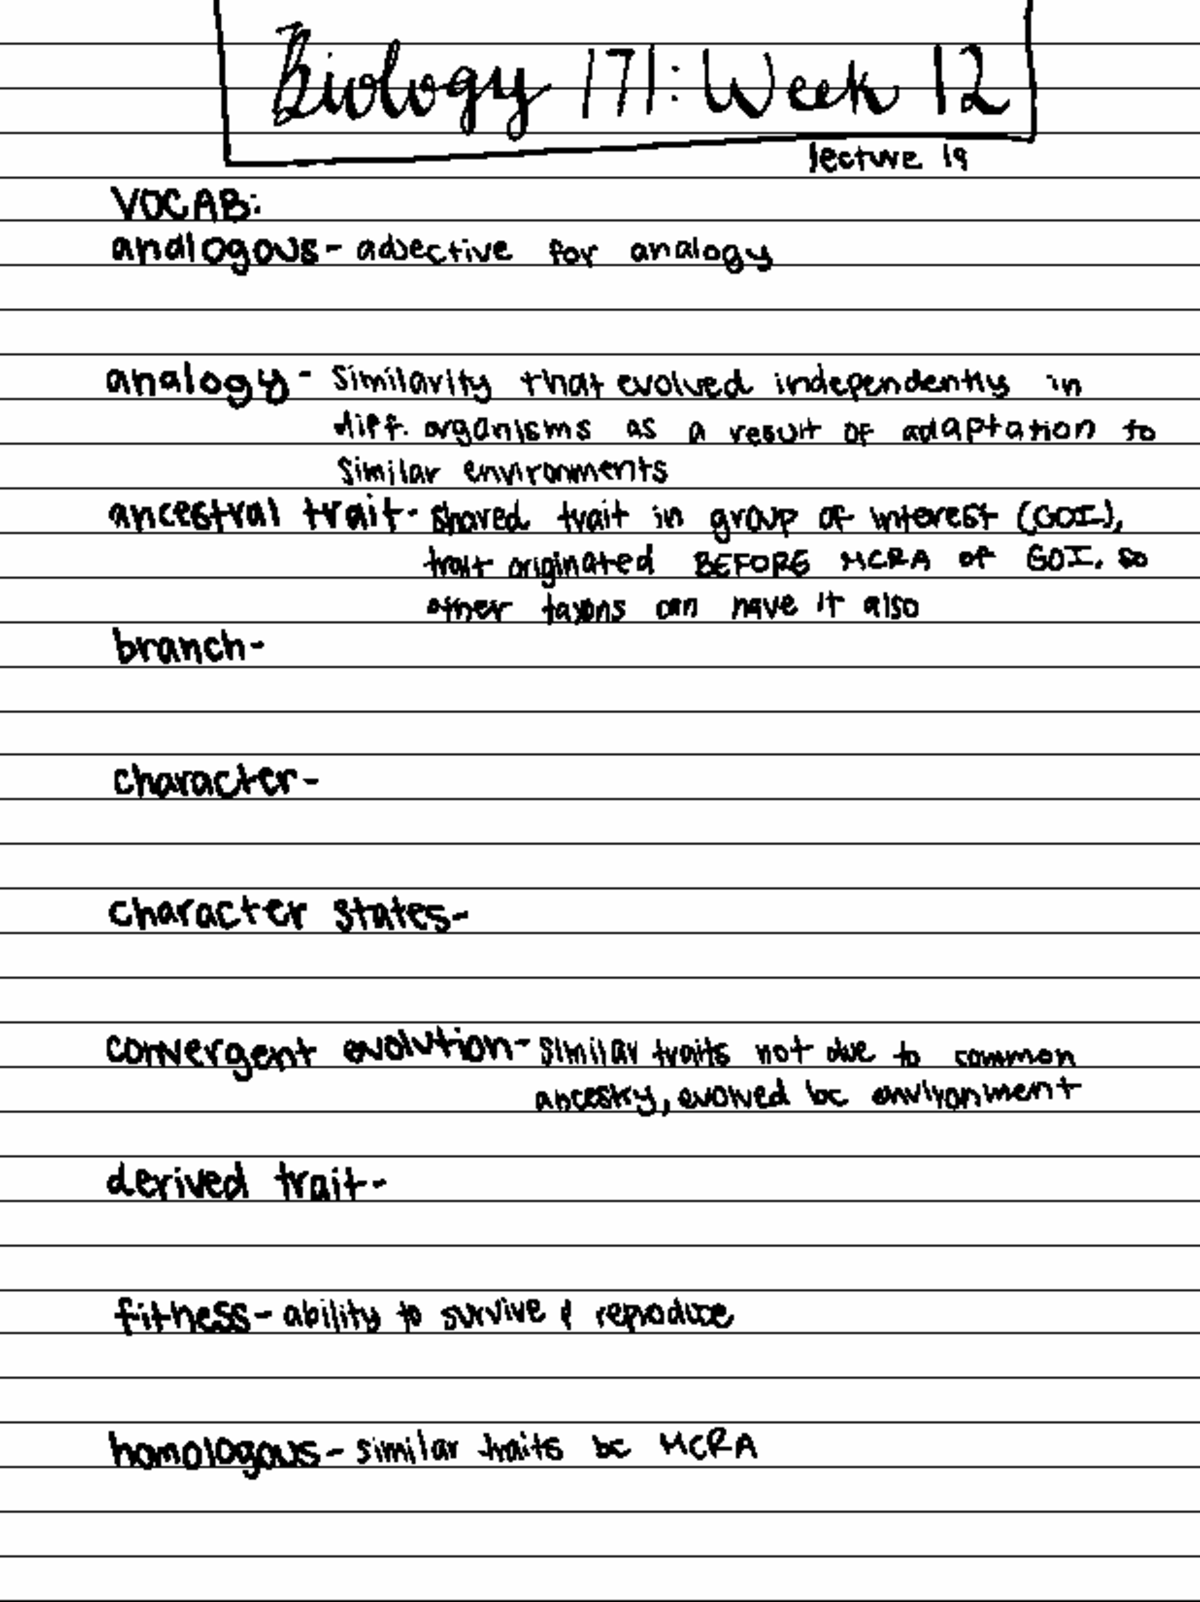 Biology 171: Week 12
lecture 19
VOCAB:
analogous- adjective for analogy
analogy- Similarity that evolved independently in
diff. organisms as a result of adaptation to
similar environments
ancestral trait- shared trait in group of interest (GOI),
trait originated BEFORE MCRA of GOI. so
other taxons can have it also
branch-
character-
character states-
convergent evolution- similar traits not due to common
ancestry, evolved bc environment
derived trait-
fitness- ability to survive & reproduce
homologous- similar traits bc MCRA